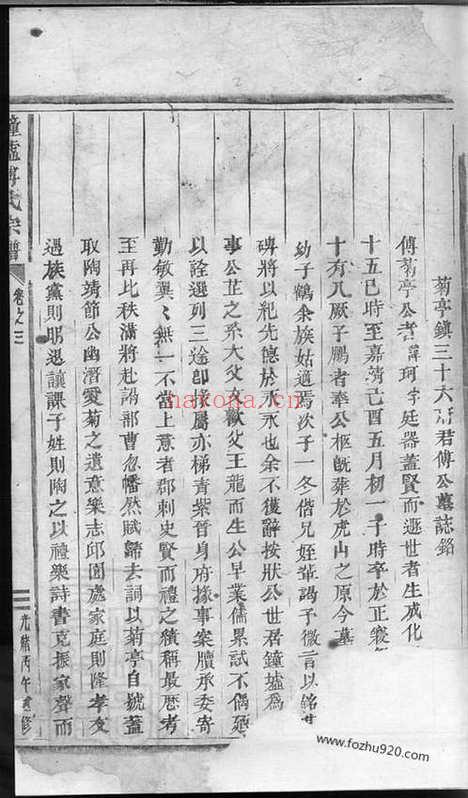 菊亭鎮三十六府君傅公墓誌銘
傅菊亭公者諱珂字廷器蓋賢而遯世者生成化
十五巳時至嘉靖己酉五月初一子時卒於正寢
十有八厥子鵬者奉公柩既葬於虎山之原今墓
幼子鶴余族姑適焉次子一冬偕兄姪輩謁予徵言以銘
碑將以紀先德於不永也余不獲辭按狀公世居鐘墟為
事公芷之系大父 父王龍而生公早業儒累試不偶
以詮選列三途即掾屬亦梯青紫晉身府掾事案牘承委寄
勤敏異〻無一不當上意者郡刺史賢而禮之積稱最歷考
至再比秩滿將赴謁部曹忽幡然賦歸去詞以菊亭自號蓋
取陶靖節公幽潛愛菊之遺意樂志邱園處家庭則隆孝友
遇族黨則明退讓課子姓則陶之以禮樂詩書克振家聲而
鐘墟傅氏宗譜
卷之三
光緒丙午重修
hakono.com
www.fozhu920.com